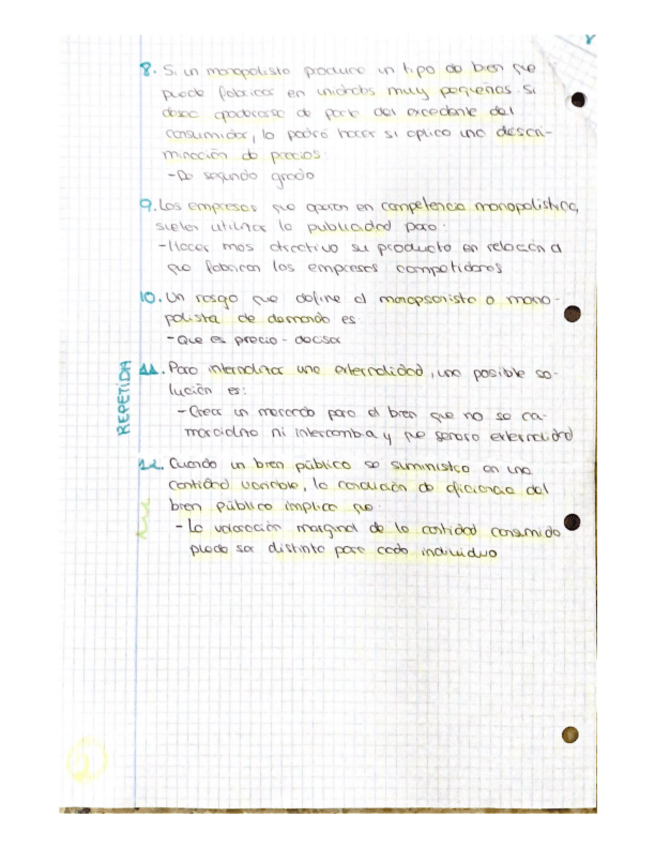 8. Si un monopolista produce un tipo de bien que
puede fabricar en unidades muy pequeñas. Si
desea apoderarse de parte del excedente del
consumidor, lo podrá hacer si aplica una descri-
minación de precios:
-De segundo grado
9. Las empresas que operan en competencia monopolística,
suelen utilizar la publicidad para:
-Hacer más atractivo su producto en relación a
que fabrican las empresas competidoras
10. Un rasgo que define el monopsonista o mono-
polista de demanda es:
-Que es precio-decisor
REPETIDA
11. Para internalizar una externalidad, una posible so-
lución es:
-Crear un mercado para el bien que no se co-
mercializa ni intercambia y que genera externalidad
12. Cuando un bien público se suministra en una
cantidad variable, la condición de eficiencia del
bien público implica que:
-La valoración marginal de la cantidad consumida
puede ser distinta para cada individuo